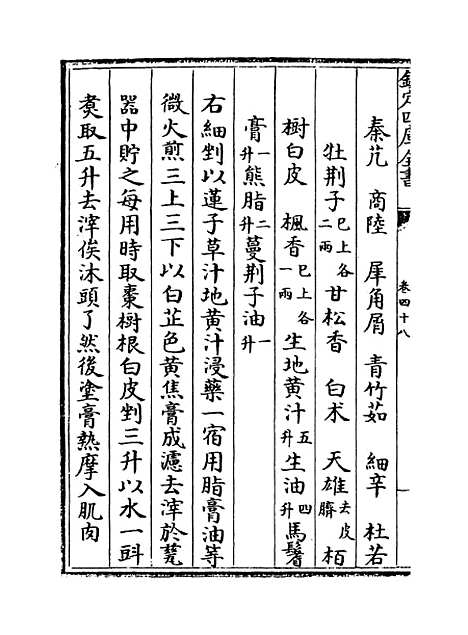 欽定四庫全書
卷四十八
秦艽　商陸　犀角屑　青竹茹　細辛　杜若
牡荆子已上各二兩甘松香　白术　天雄去皮臍栢
樹白皮　楓香已上各一兩生地黄汁五升生油四升馬鬐
膏一升熊脂二升蔓荆子油一升
右細剉以蓮子草汁地黄汁浸藥一宿用脂膏油等
微火煎三上三下以白芷色黄焦膏成濾去滓於甆
器中貯之每用時取棗樹根白皮剉三升以水一㪷
煑取五升去滓俟沐頭了然後塗膏熱摩入肌肉